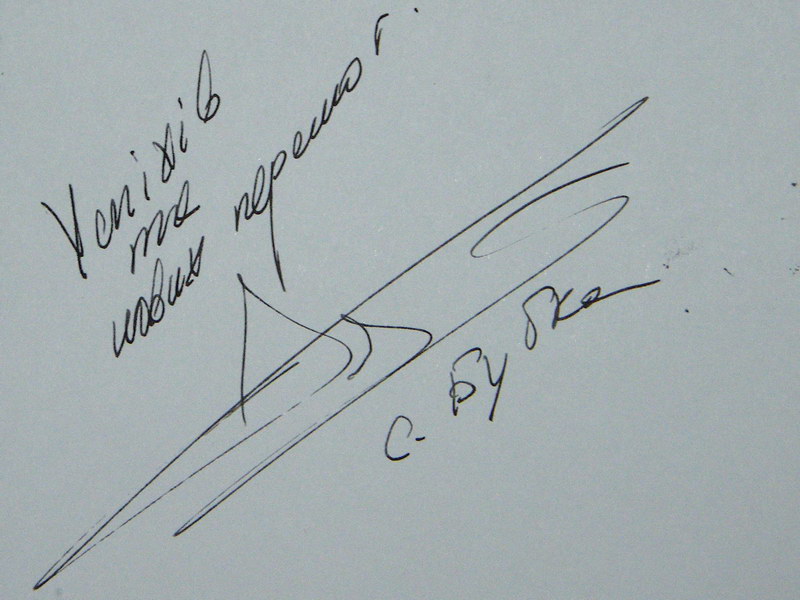 Успіхів
та
нових перемог.
С. Бубка